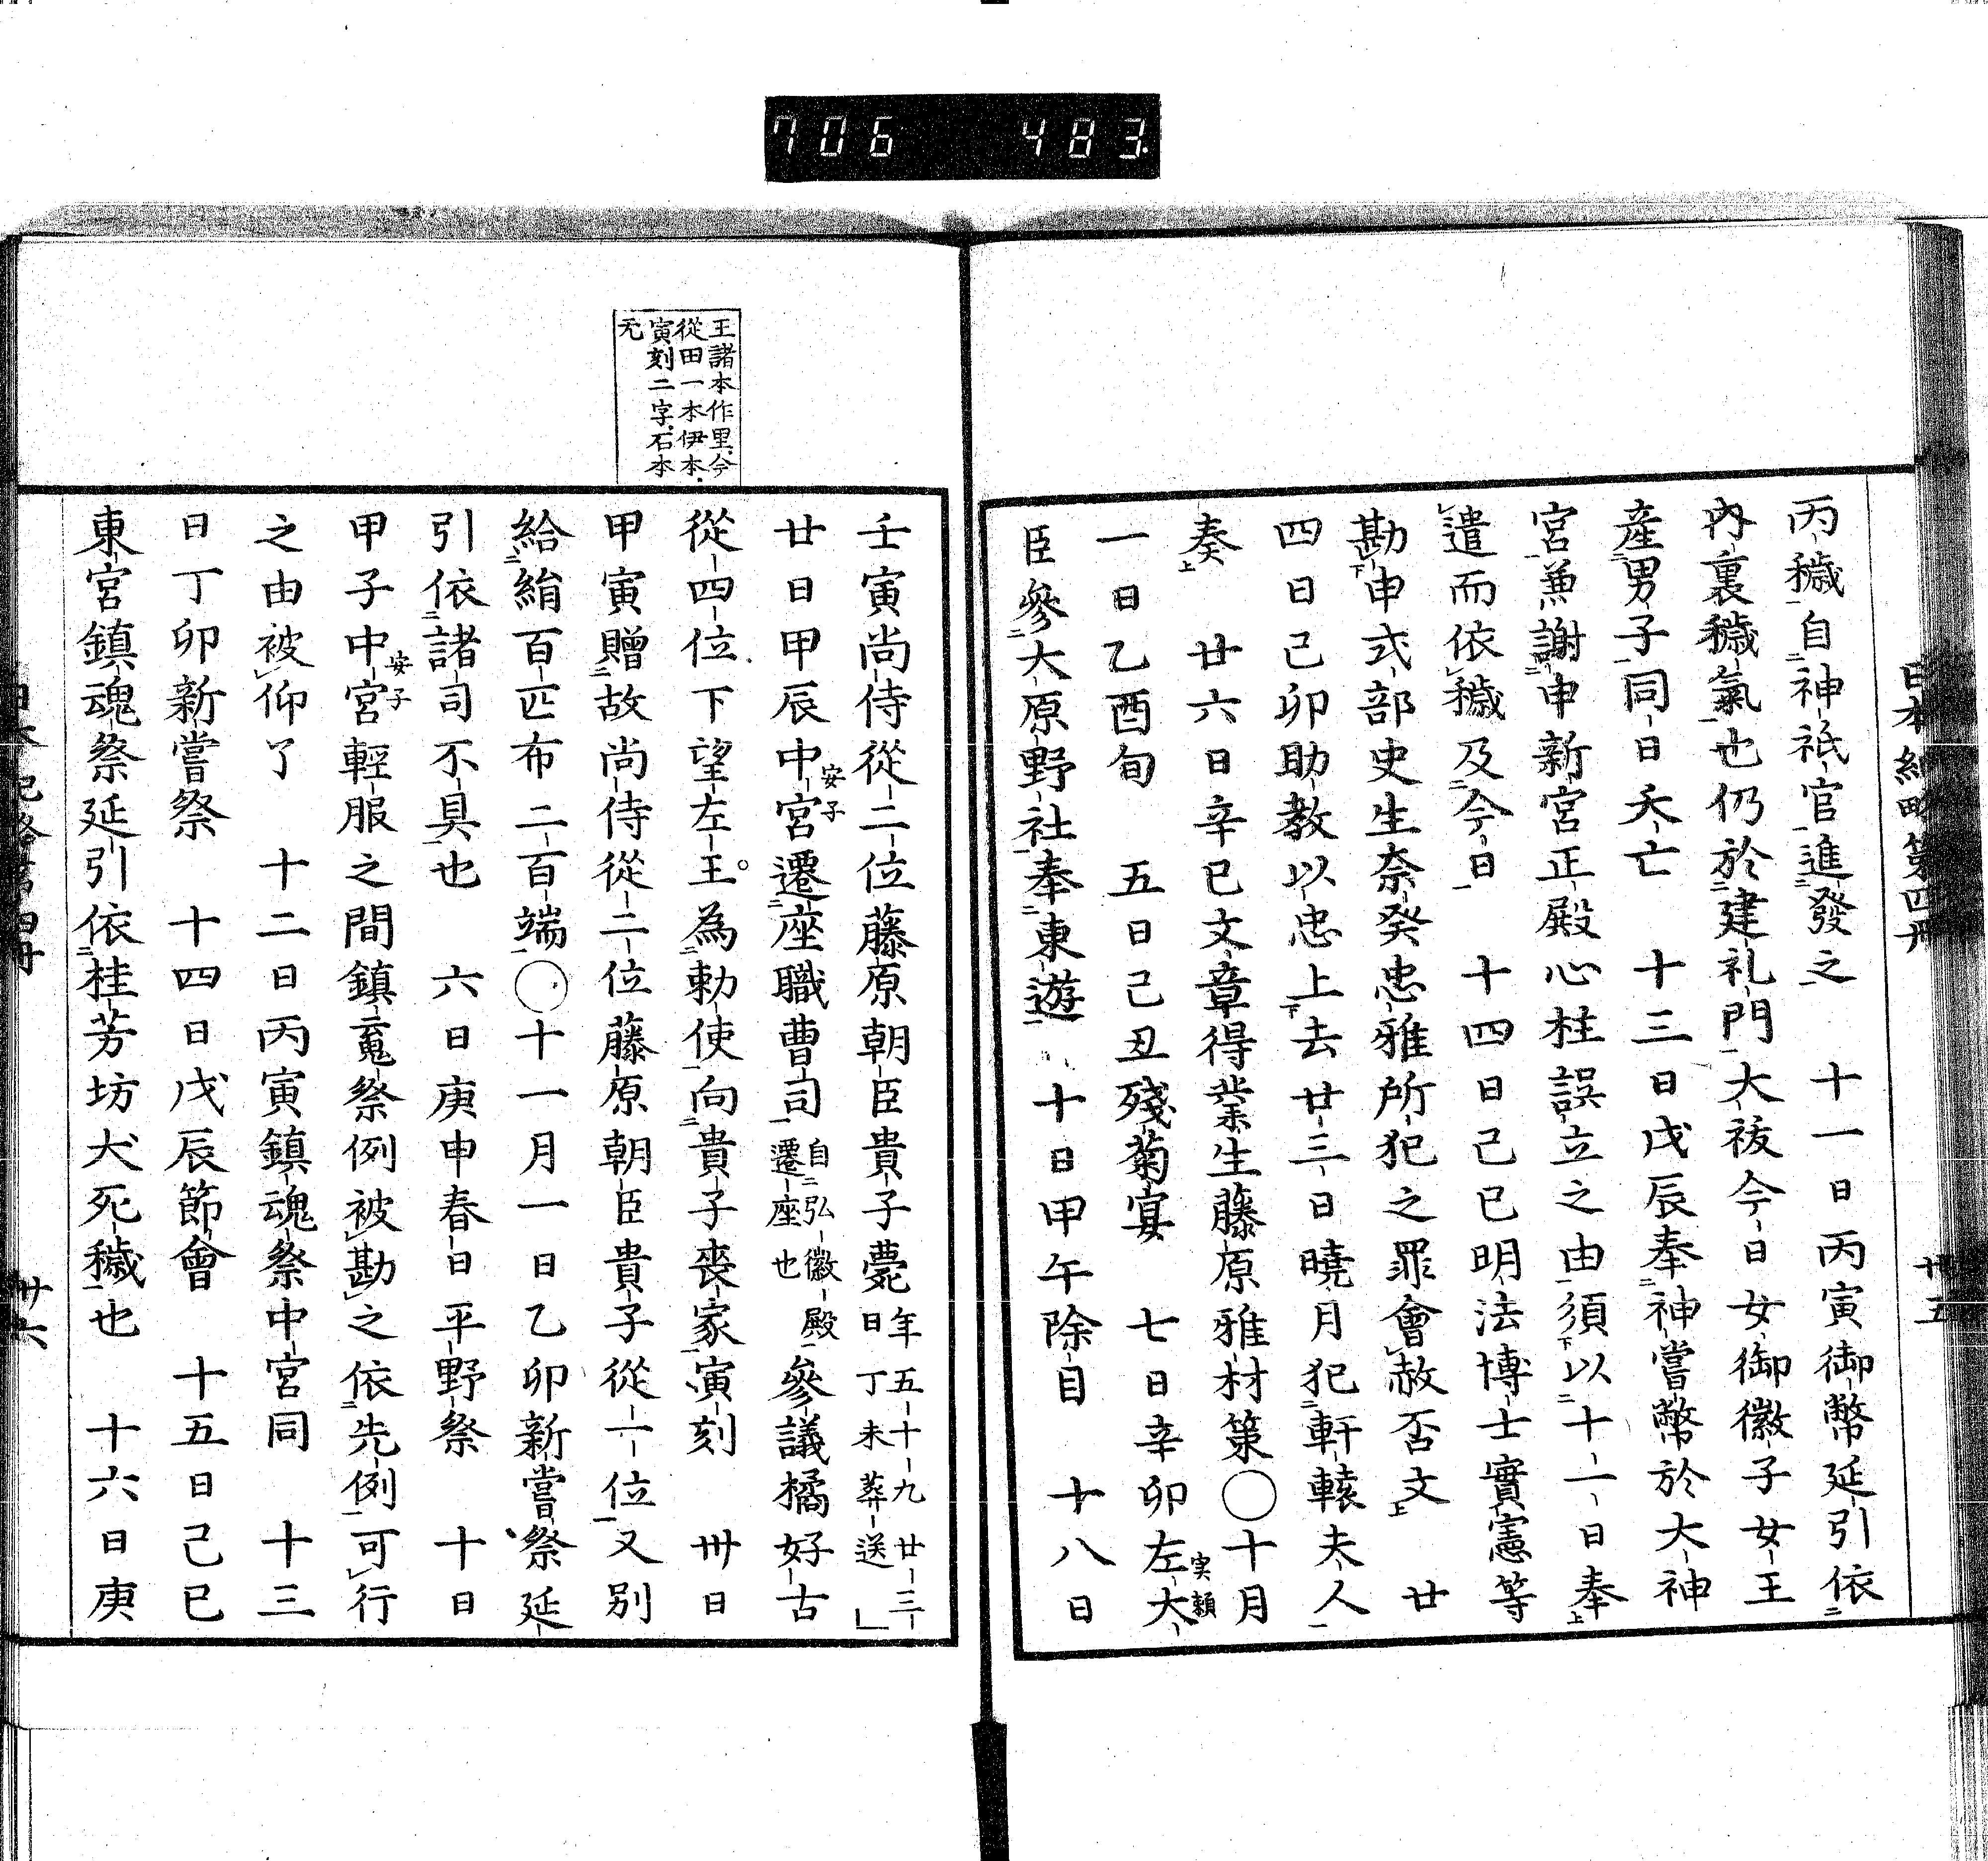 706 483
日本紀略第四册 廿五
丙穢自神祇官進發之 十一日丙寅御幣延引依
內裏穢氣也仍於建礼門大祓今日女御徽子女王
産男子同日夭亡 十三日戊辰奉神嘗幣於大神
宮兼謝申新宮正殿心柱誤立之由須以十一日奉
遣而依穢及今日 十四日己巳明法博士實憲等
勘申式部史生奈癸忠雅所犯之罪會赦否文 廿
四日己卯助教以忠上去廿三日曉月犯軒轅夫人
奏 廿六日辛巳文章得業生藤原雅材策〇十月
一日乙酉旬 五日己丑殘菊宴 七日辛卯左大
実頼
臣參大原野社奉東遊 十日甲午除目 十八日
王諸本作里今
從田一本伊本
寅刻二字石本
无
壬寅尚侍從二位藤原朝臣貴子薨年五十九廿三
日丁未葬送」
廿日甲辰中宮遷座職曹司自弘徽殿
遷座也參議橘好古
安子
從四位下望左王為勅使向貴子喪家寅刻 卅日
甲寅贈故尚侍從二位藤原朝臣貴子從一位又別
給絹百匹布二百端〇十一月一日乙卯新嘗祭延
引依諸司不具也 六日庚申春日平野祭 十日
甲子中宮輕服之間鎮䰟祭例被勘之依先例可行
安子
之由被仰了 十二日丙寅鎮魂祭中宮同 十三
日丁卯新嘗祭 十四日戊辰節會 十五日己巳
東宮鎮魂祭延引依桂芳坊犬死穢也 十六日庚
日本紀略第四册 廿六